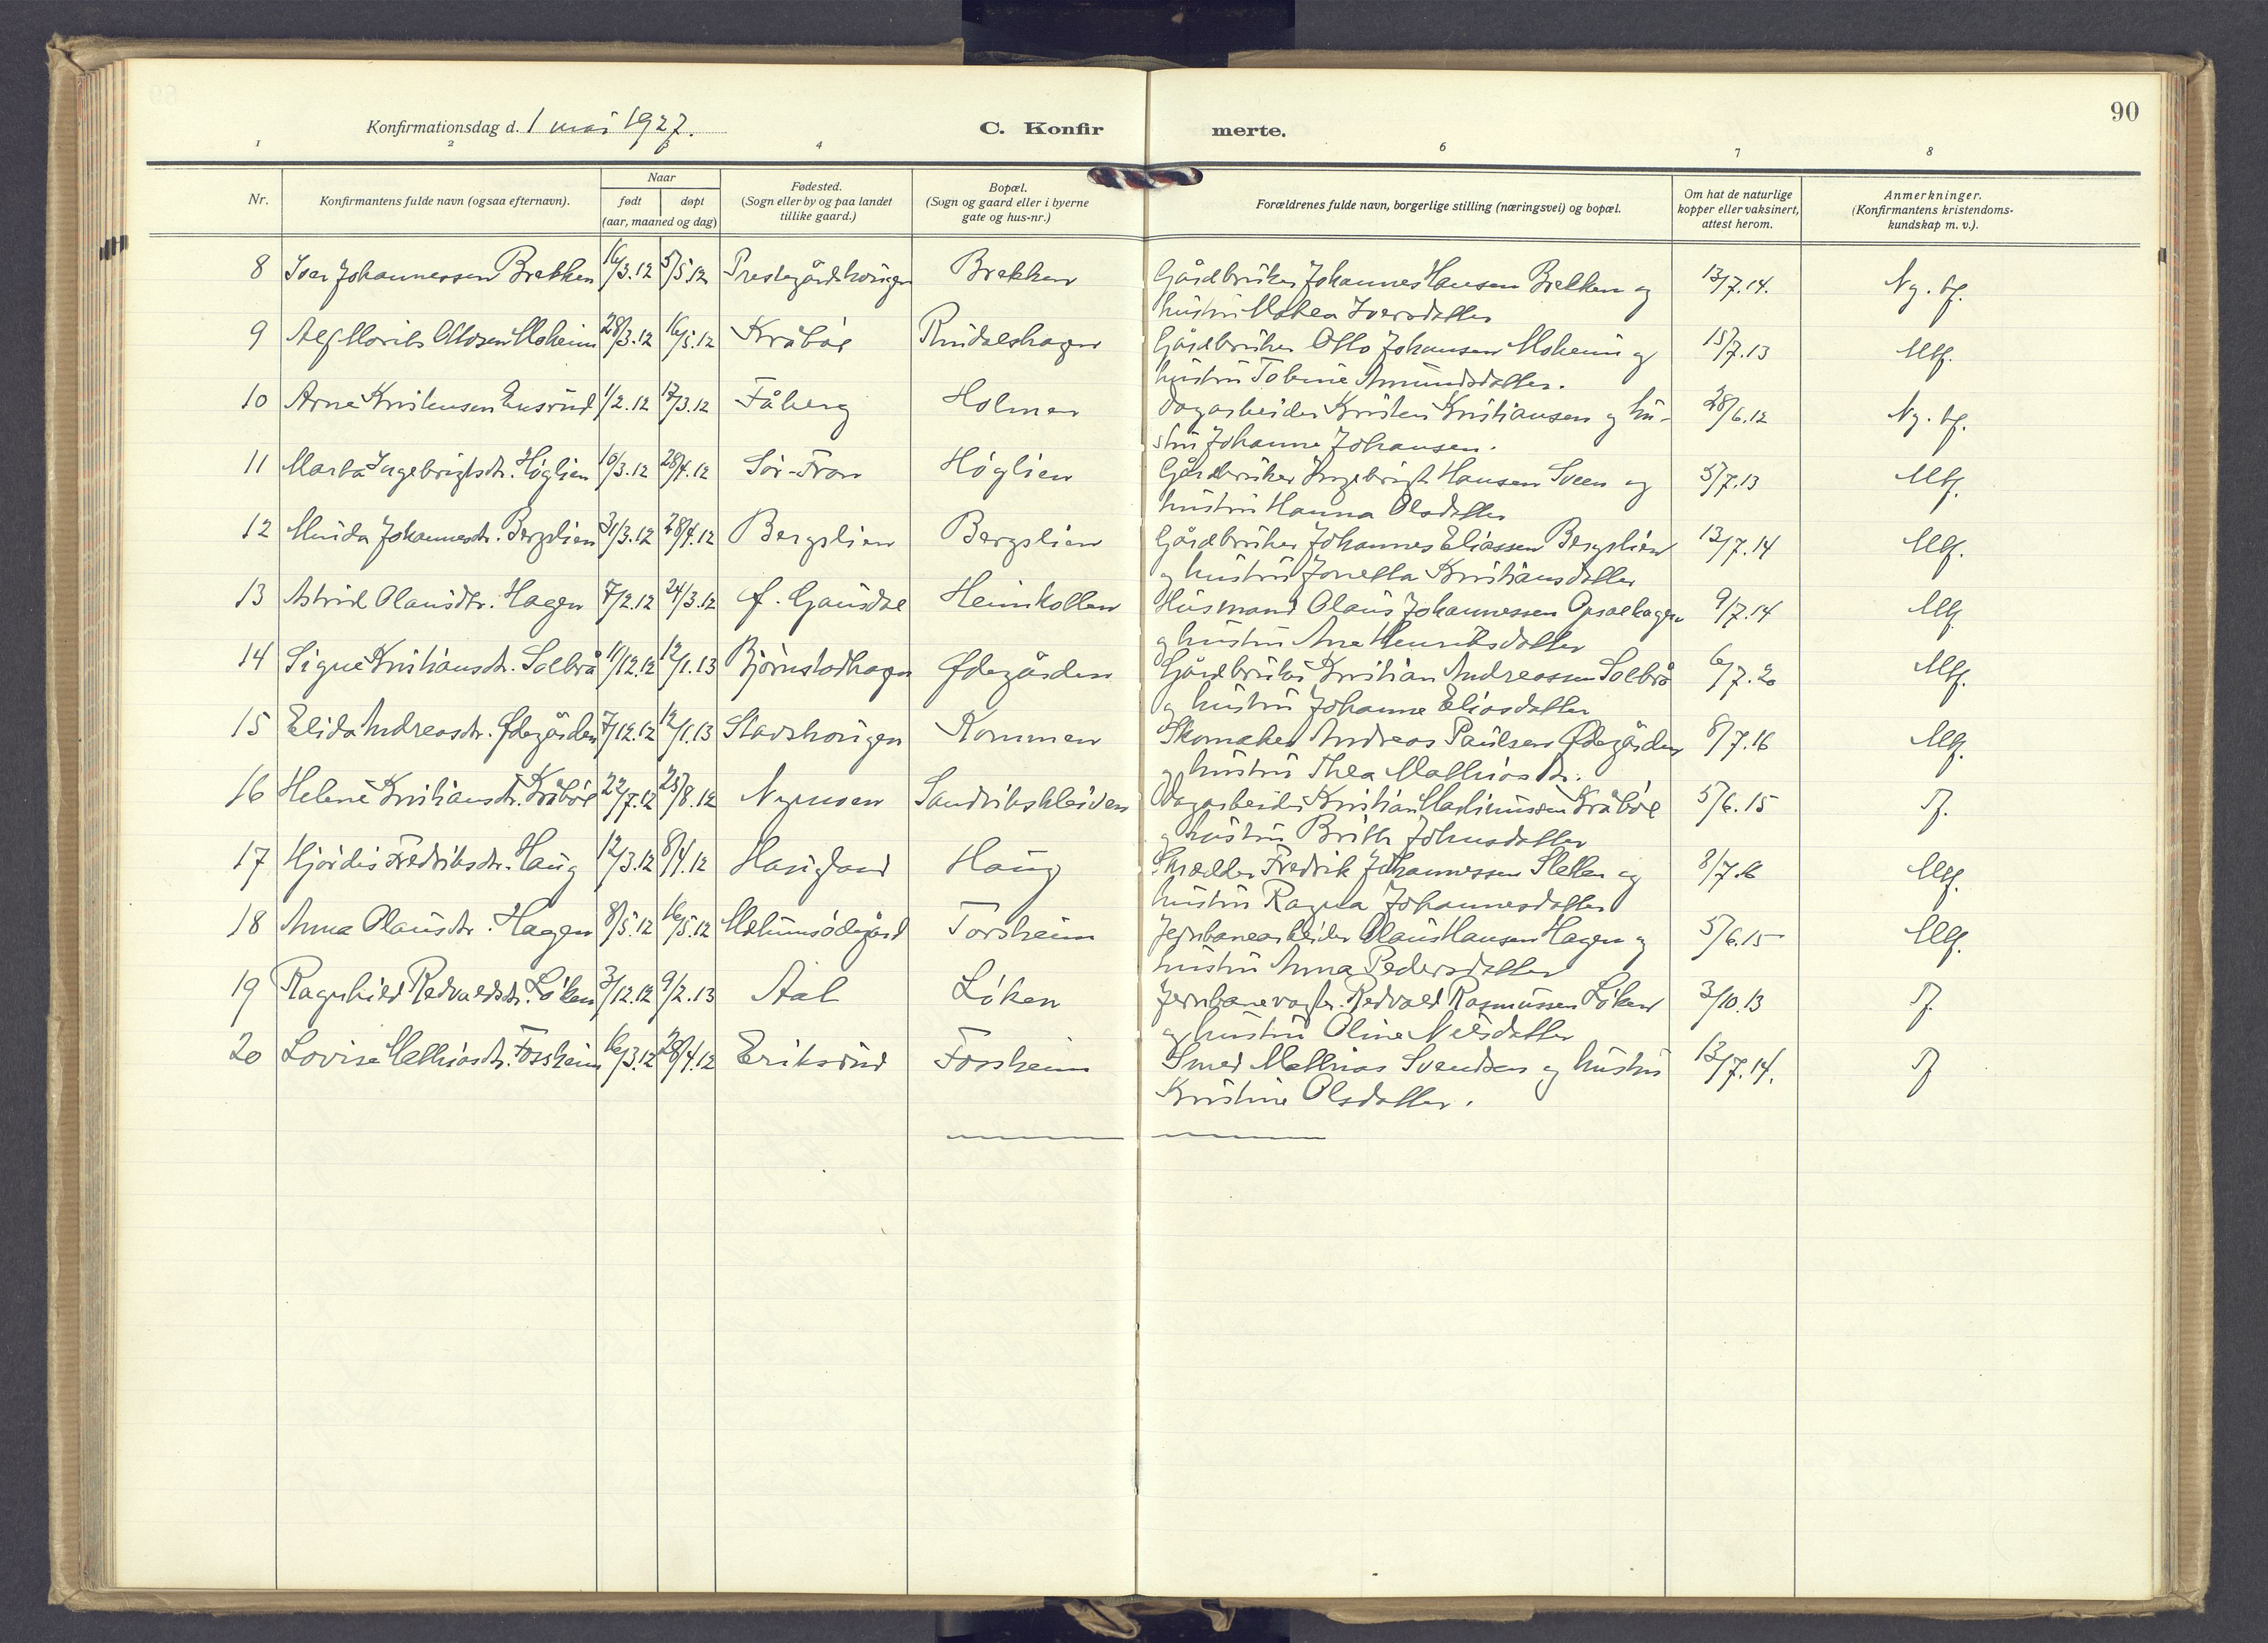 90
Konfirmationsdag d. 1 mai 1927.
C. Konfirmerte.
1 2 3 4 6 7 8
Nr.
Konfirmantens fulde navn (ogsaa efternavn).
Naar
født døpt
(aar, maaned og dag)
Fødested.
(Sogn eller by og paa landet
tillike gaard.)
Bopæl.
(Sogn og gaard eller i byerne
gate og hus-nr.)
Forældrenes fulde navn, borgerlige stilling (næringsvei) og bopæl.
Om hat de naturlige
kopper eller vaksinert,
attest herom.
Anmerkninger.
(Konfirmantens kristendoms-
kundskap m. v.).
8 Iver Johannessen Brekken 16/3.12 5/5.12 Brekken Gårdbruker Johannes Hansen Brekken og 13/7.14.
hustru Mathea Iversdatter
9 Alf Marits Ottosen Moheim 28/3.12 16/5.12 Kråböl Rindalshagen Gårdbruker Otto Johansen Moheim og 15/7.13 Mtf.
hustru Tobine Amundsdatter.
10 Arne Kristensen Ensrud 1/2.12 17/3.12 Fåberg Holmen Dagarbeider Kristen Kristiansen og hu- 28/6.12
stru Johanne Johansen.
11 Marta Ingebrigtsdtr. Höglien 10/3.12 28/4.12 Sör-Fron Höglien Gårdbruker Ingebrigt Hansen Sveen og 5/7.13 Mtf.
hustru Hanna Olsdatter
12 Johannesdtr. Bergslien 31/3.12 28/4.12 Bergslien Bergslien Gårdbruker Johannes Eliassen Bergslien 13/7.14 Mtf.
og hustru Jonetta Kristiansdatter
13 Astrid Olausdtr. Hagen 7/2.12 24/3.12 f. Gausdal Heimkollen Husmand Olaus Johannessen Opsalhagen 9/7.14 Mtf.
og hustru Ane Henriksdatter
14 Signe Kristiansdtr. Solbrå 11/12.12 12/1.13 Björnstadhagen Ødegården Gårdbruker Kristian Andreassen Solbrå 6/7.20 Mtf.
og hustru Johanne Eliasdatter
15 Elida Andreasdtr. Ødegården 7/12.12 12/1.13 Rommen Skomaker Andreas Paulsen Ødegården 8/7.16 Mtf.
og hustru Thea Mathiasdtr.
16 Helene Kristiansdtr. Kråböl 22/7.12 25/8.12 Nymoen Sandvikskleiven Dagarbeider Kristian Martinussen Kråböl 5/6.15 T.
og hustru Brith Johnsdatter
17 Hjördis Fredriksdtr. Haug 12/3.12 8/4.12 Haug Skrædder Fredrik Johannessen Sletten og 8/7.16 Mtf.
hustru Ragna Johannesdatter
18 Anna Olausdtr. Hagen 8/5.12 16/5.12 Torsheim Jernbanearbeider Olaus Hansen Hagen og 5/6.15 Mtf.
hustru Anna Pedersdatter
19 Ragnhild Redvaldsdtr. Löken 3/12.12 9/2.13 Aal Löken Jernbanevogter Redvald Rasmussen Löken 3/10.13 T.
og hustru Oline Nilsdatter
20 Lovise Mathiasdtr. Fossheim 16/3.12 28/4.12 Eriksrud Fossheim Smed Mathias Svendsen og hustru 13/7.14. T
Kristine Olsdatter.